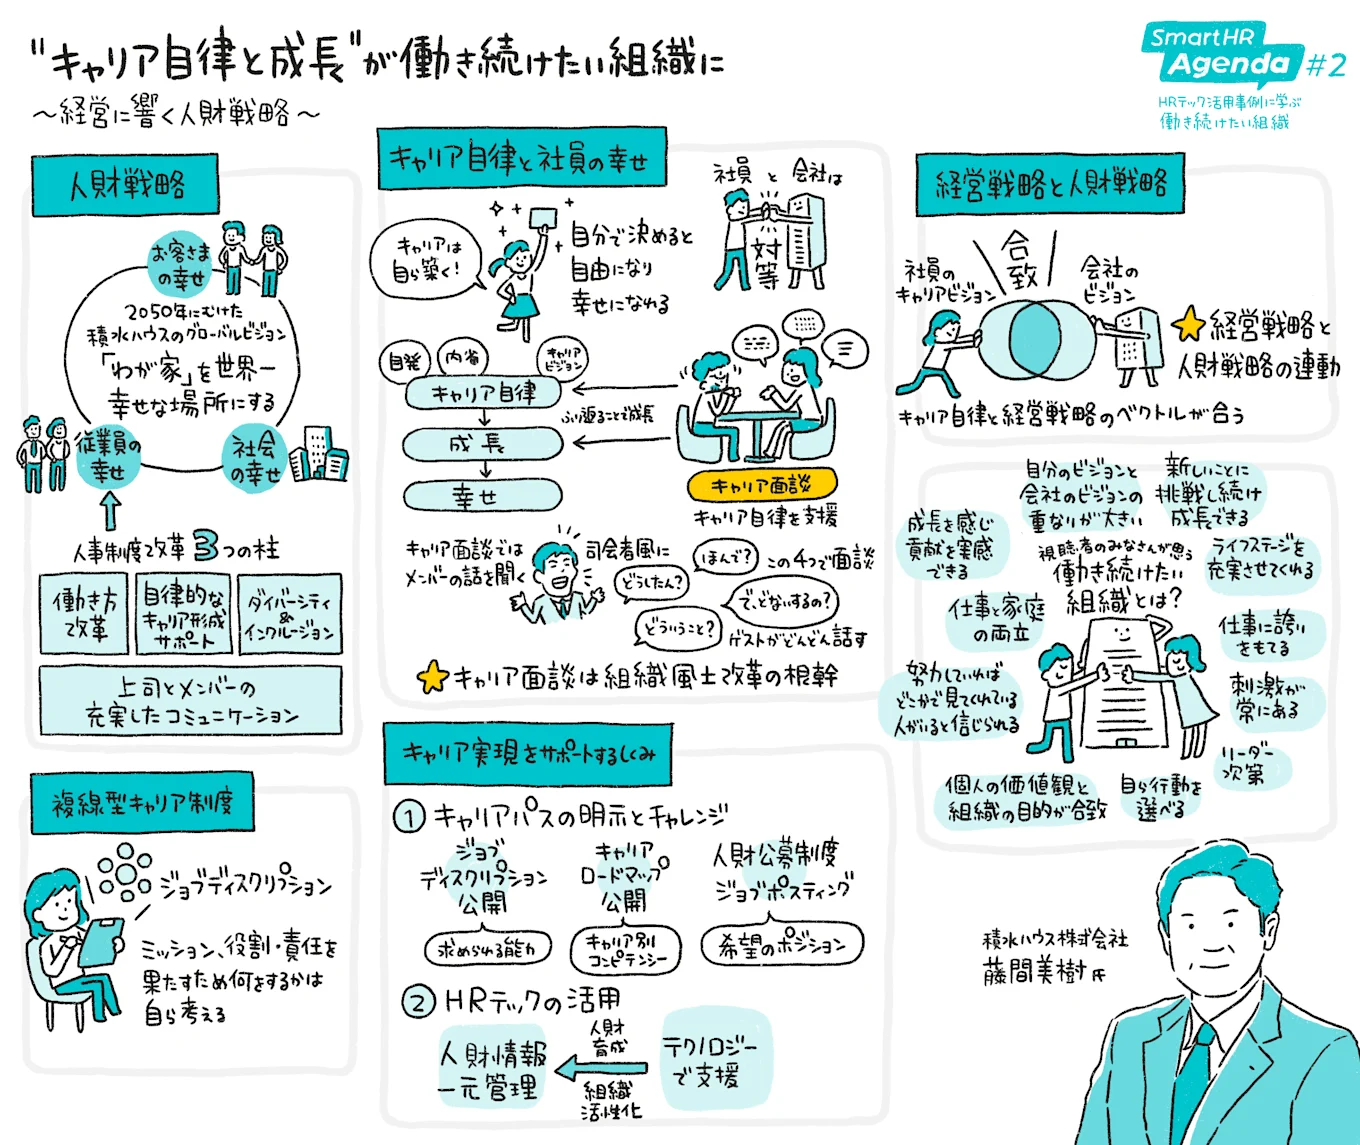 "キャリア自律と成長"が働き続けたい組織に
〜経営に響く人財戦略〜
SmartHR
Agenda #2
HRテック活用事例に学ぶ
働き続けたい組織
人財戦略
お客さま
の幸せ
2050年にむけた
積水ハウスのグローバルビジョン
「わが家」を世界一
幸せな場所にする
従業員の
幸せ
社会
の幸せ
人事制度改革 3つの柱
働き方
改革
自律的な
キャリア形成
サポート
ダイバーシティ
&
インクルージョン
上司とメンバーの
充実したコミュニケーション
複線型キャリア制度
ジョブディスクリプション
ミッション、役割・責任を
果たすため何をするかは
自ら考える
キャリア自律と社員の幸せ
キャリアは
自ら築く!
自分で決めると
自由になり
幸せになれる
社員と会社は
対等
自発
内省
キャリア
ビジョン
キャリア自律
ふり返ることで成長
成長
幸せ
キャリア面談
キャリア自律を支援
キャリア面談では
メンバーの話を聞く
司会者風に
どうしたん?
ほんで?
この4つで面談
で、どないするの?
どういうこと?
ゲストがどんどん話す
キャリア面談は組織風土改革の根幹
キャリア実現をサポートするしくみ
① キャリアパスの明示とチャレンジ
ジョブ
ディスクリプション
公開
求められる能力
キャリア
ロードマップ
公開
キャリア別
コンピテンシー
人財公募制度
ジョブポスティング
希望のポジション
② HRテックの活用
人財情報
一元管理
人財
育成
組織
活性化
テクノロジー
で支援
経営戦略と人財戦略
合致
社員の
キャリアビジョン
会社の
ビジョン
経営戦略と
人財戦略の連動
キャリア自律と経営戦略のベクトルが合う
自分のビジョンと
会社のビジョンの
重なりが大きい
新しいことに
挑戦し続け
成長できる
成長を感じ
貢献を実感
できる
視聴者のみなさんが思う
働き続けたい
組織とは?
ライフステージを
充実させてくれる
仕事と家庭
の両立
仕事に誇り
をもてる
努力していれば
どこかで見てくれている
人がいると信じられる
刺激が
常にある
リーダー
次第
個人の価値観と
組織の目的が合致
自ら行動を
選べる
積水ハウス株式会社
藤間美樹氏